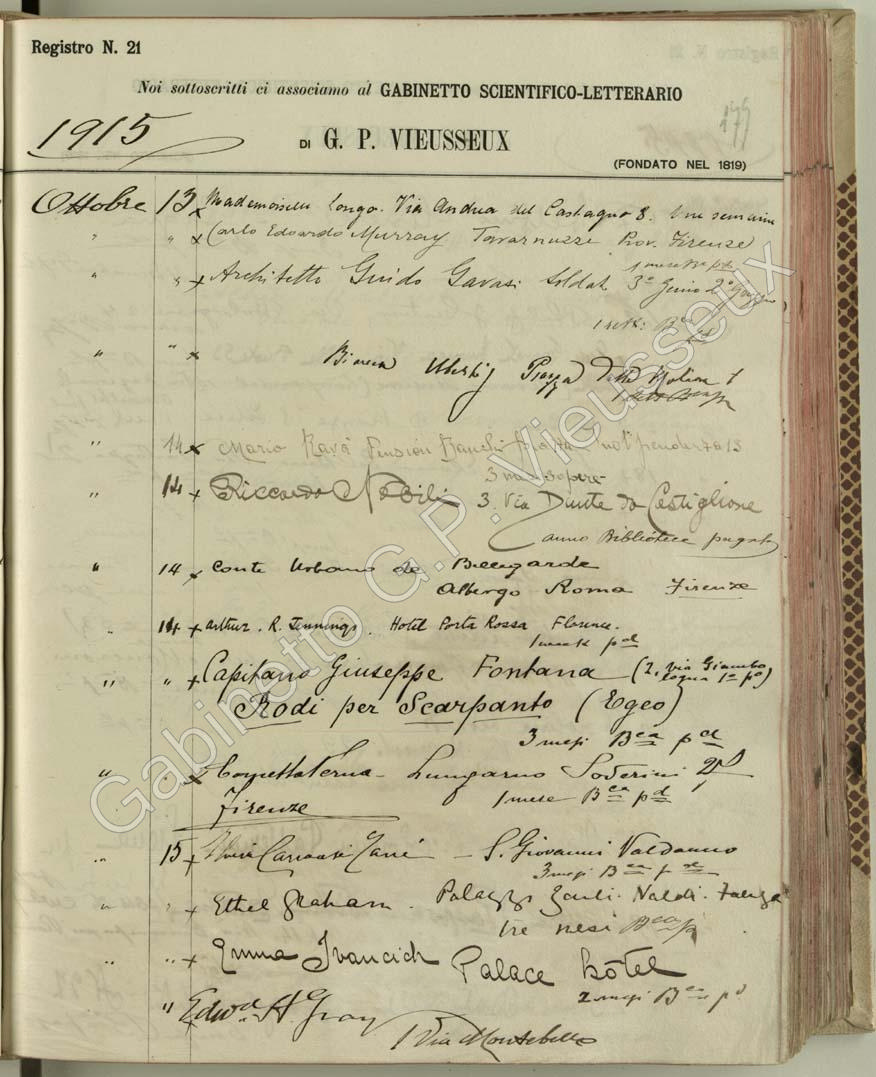 Registro N. 21
Noi sottoscritti ci associamo al GABINETTO SCIENTIFICO-LETTERARIO
175
1915
DI G. P. VIEUSSEUX
(FONDATO NEL 1819)
Ottobre 13 x Mademoiselle Longo. Via Andrea del Castagno 8. Une semaine
" " x Carlo Edoardo Murray Tavarnuzze Prov. Firenze
1 mese Bca pd
" " x Architetto Guido Gavasi Soldato 3° Genio 2°
1 sett: Bca pd
" " x Uberti Piazza della 1
" 14 x Mario Ravà Pension Banchi Piazza Indipendenza 13
3 mesi opere
" 14 x Riccardo Nobili 3. Via Dante da Castiglione
anno Biblioteca pagato
" 14 x Conte Urbano de Bellegarde
Albergo Roma Firenze
" 14 x Arthur. R. Jennings. Hotel Porta Rossa Florence.
1 week pd
" " x Capitano Giuseppe Fontana (2, via Giambologna 1° po)
Rodi per Scarpanto (Egeo)
3 mesi Bca pd
" " x Lungarno Soderini 21
Firenze
1 mese Bca pd
" 15 x S. Giovanni Valdarno
3 mesi Bca pd
" " x Ethel Graham. Palazzo Zauli. Naldi. Faenza
tre mesi Bca p
" " x Emma Ivancich Palace Hôtel
2 mesi Bca pd
" x Edwd. A. Gray
1 Via Montebello
Gabinetto G.P. Vieusseux